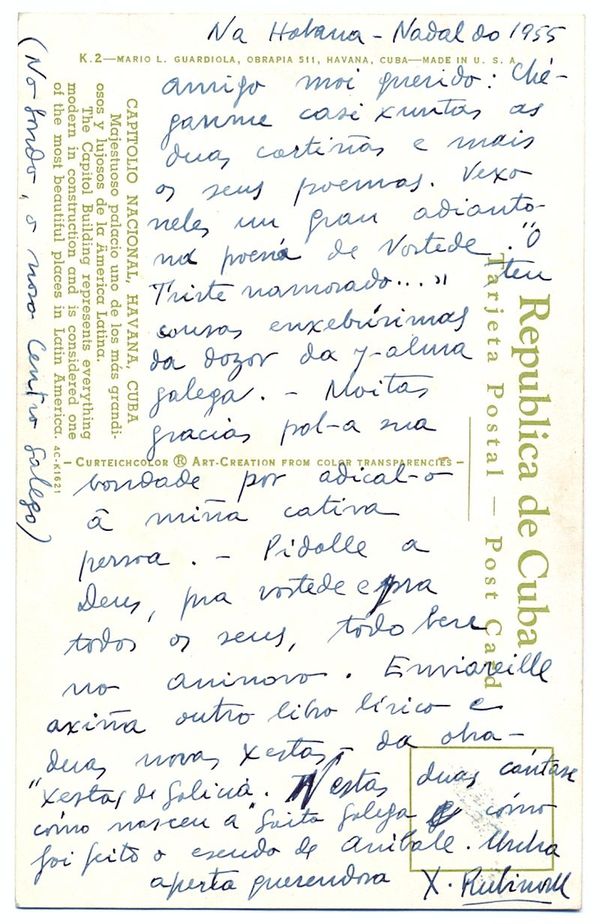 Na Habana - Nadal do 1955
K.2—MARIO L. GUARDIOLA, OBRAPIA 511, HAVANA, CUBA—MADE IN U. S. A.
amigo moi querido: Ché-
ganme casi xuntas as
duas cartiñas e mais
os seus poemas. Vexo
neles un gran adianto
na poesía de Vostede. "O
Triste namorado...." ten
cousas enxebrísimas
da dozor da y-alma
galega. - Moitas
gracias pol-a sua
bondade por adical-o
â miña cativa
persoa. - Pídolle a
Deus, pra vostede e pra
todos os seus, todo ben
no aninovo. Enviareille
axiña outro libro lírico e
duas novas xestas - da obra -
"xestas de Galicia. Nestas duas cántase
cómo nasceu a "Gaita galega e cómo
foi feito o escudo de Anibale. Unha
aperta querendosa X. Rubinos
(No fondo, o noso Centro Galego)
CAPITOLIO NACIONAL, HAVANA, CUBA
Majestuoso palacio uno de los más grandi-
osos y lujosos de la América Latina.
The Capitol Building represents everything
modern in construction and is considered one
of the most beautiful places in Latin America.
AC-K1621
- CURTEICHCOLOR ® ART-CREATION FROM COLOR TRANSPARENCIES -
Republica de Cuba
Tarjeta Postal — Post Card